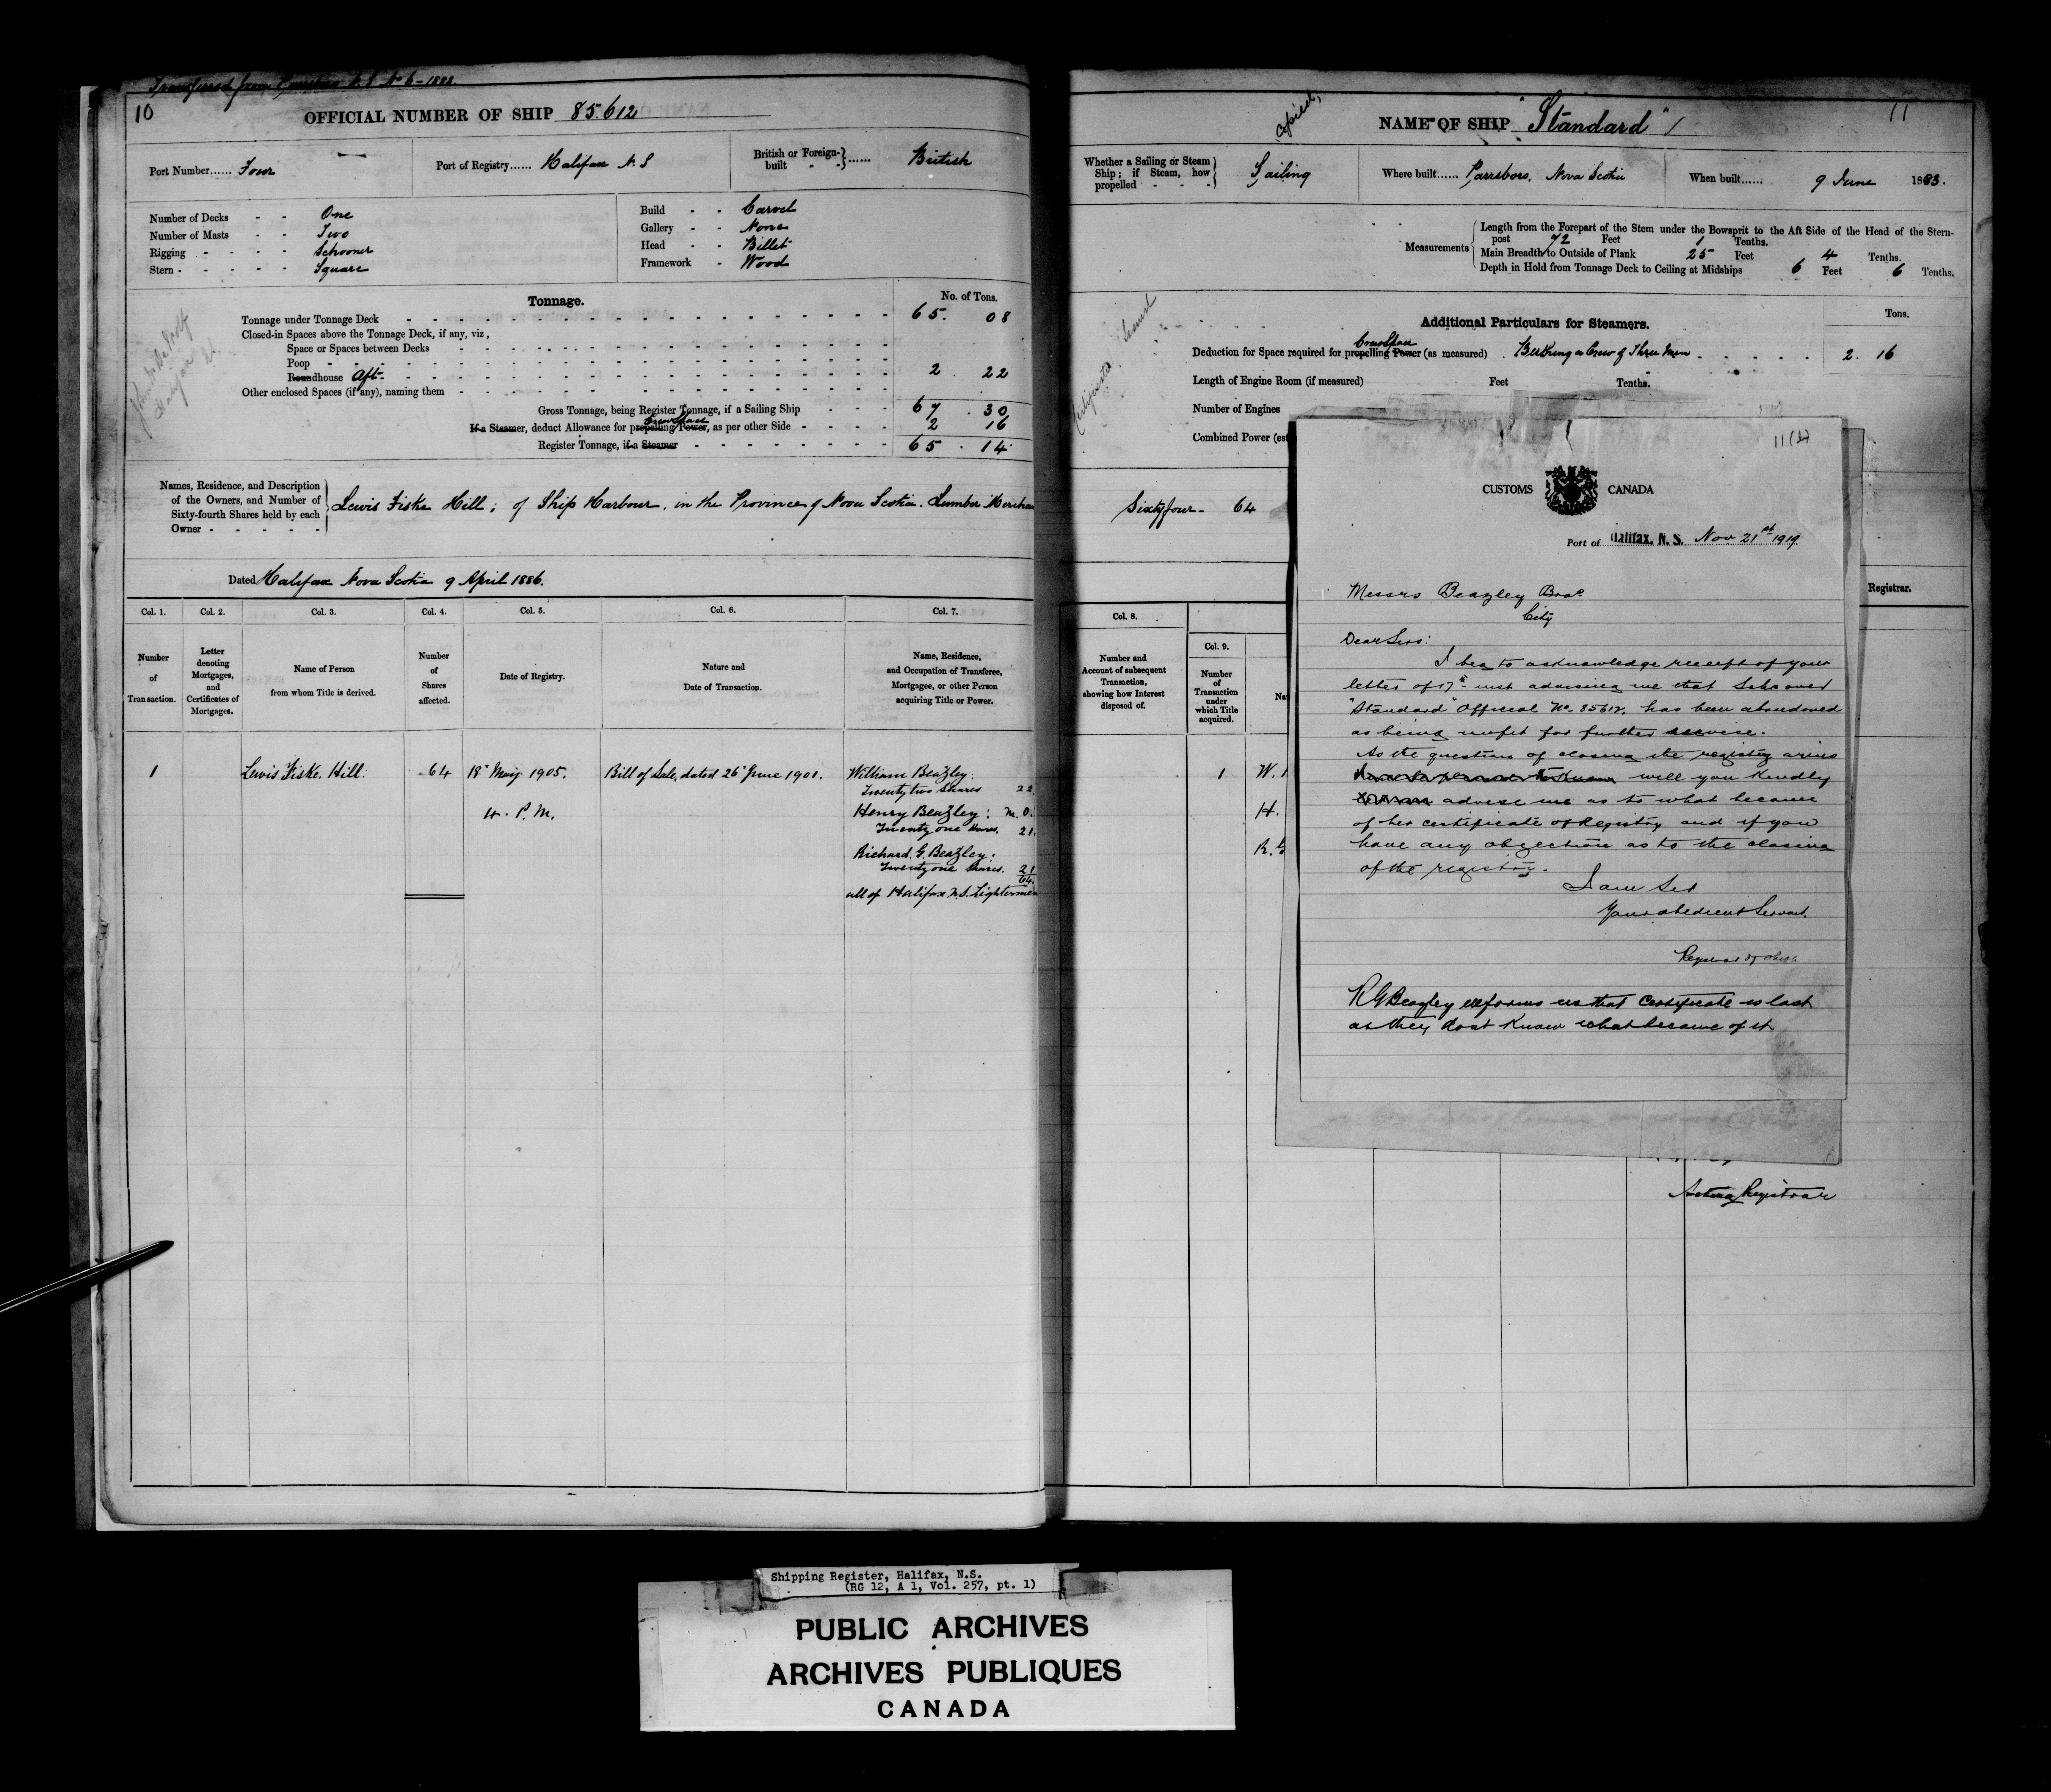 Transferred from N.S. No 6 - 1883.
10
OFFICIAL NUMBER OF SHIP 85.612
Port Number...... Four
Port of Registry...... Halifax N.S
British or Foreign-built...... British
Number of Decks - - One
Number of Masts - - Two
Rigging - - - - Schooner
Stern - - - - - Square
Build - - Carvel
Gallery - - None
Head - - Billet
Framework - Wood
Tonnage.
No. of Tons.
Tonnage under Tonnage Deck 65. 08
Closed-in Spaces above the Tonnage Deck, if any, viz.,
Space or Spaces between Decks
Poop
Roundhouse Aft 2 . 22
Other enclosed Spaces (if any), naming them
Gross Tonnage, being Register Tonnage, if a Sailing Ship 67 . 30
If a Steamer, deduct Allowance for propelling Power, as per other Side 2 16
Crew Space
Register Tonnage, if a Steamer 65 . 14
Names, Residence, and Description
of the Owners, and Number of
Sixty-fourth Shares held by each
Owner
Lewis Fiske Hill; of Ship Harbour, in the Province of Nova Scotia. Lumber Merchan
Dated Halifax Nova Scotia 9 April 1886.
Col. 1. Col. 2. Col. 3. Col. 4. Col. 5. Col. 6. Col. 7.
Number of Transaction.
Letter denoting Mortgages, and Certificates of Mortgages.
Name of Person from whom Title is derived.
Number of Shares affected.
Date of Registry.
Nature and Date of Transaction.
Name, Residence, and Occupation of Transferee, Mortgagee, or other Person acquiring Title or Power.
1 Lewis Fiske Hill. 64 18th May 1905. Bill of Sale, dated 26th June 1901. William Beazley.
Twenty two Shares 22.
4. P.M. Henry Beazley;
Twenty one Shares. 21.
Richard G. Beazley.
Twenty one Shares. 21
64
all of Halifax N.S. Lightermen
Copied,
11
NAME OF SHIP "Standard"
Whether a Sailing or Steam Ship; if Steam, how propelled - - - Sailing
Where built...... Parrsboro, Nova Scotia
When built...... 9 June 1883.
Measurements
Length from the Forepart of the Stem under the Bowsprit to the Aft Side of the Head of the Stern-
post 72 Feet 1 Tenths.
Main Breadth to Outside of Plank 25 Feet 4 Tenths.
Depth in Hold from Tonnage Deck to Ceiling at Midships 6 Feet 6 Tenths.
Additional Particulars for Steamers.
Tons.
Crew Space
Deduction for Space required for propelling Power (as measured) . Berthing a Crew of Three Men 2. 16
Length of Engine Room (if measured) Feet Tenths.
Number of Engines
Combined Power (est
Sixty four - 64
Registrar.
Col. 8.
Number and Account of subsequent Transaction, showing how Interest disposed of.
Col. 9.
Number of Transaction under which Title acquired.
Na
1 W.
H.
R. G
11(a)
CUSTOMS CANADA
Port of Halifax, N. S. Nov 21st 1919
Messrs Beazley Bros.
City
Dear Sirs:
I beg to acknowledge receipt of your
letter of 17th inst advising me that Schooner
"Standard" Official No. 85612, has been abandoned
as being unfit for further service.
As the question of closing the registry arises
will you kindly
advise me as to what became
of her certificate of Registry and if you
have any objection as to the closing
of the registry.
I am Sir
Your obedient Servant.
Registrar of Ships
R G Beazley informs us that Certificate is lost
as they dont know what became of it
Acting Registrar
Shipping Register, Halifax, N.S.
(RG 12, A 1, Vol. 257, pt. 1)
PUBLIC ARCHIVES
ARCHIVES PUBLIQUES
CANADA